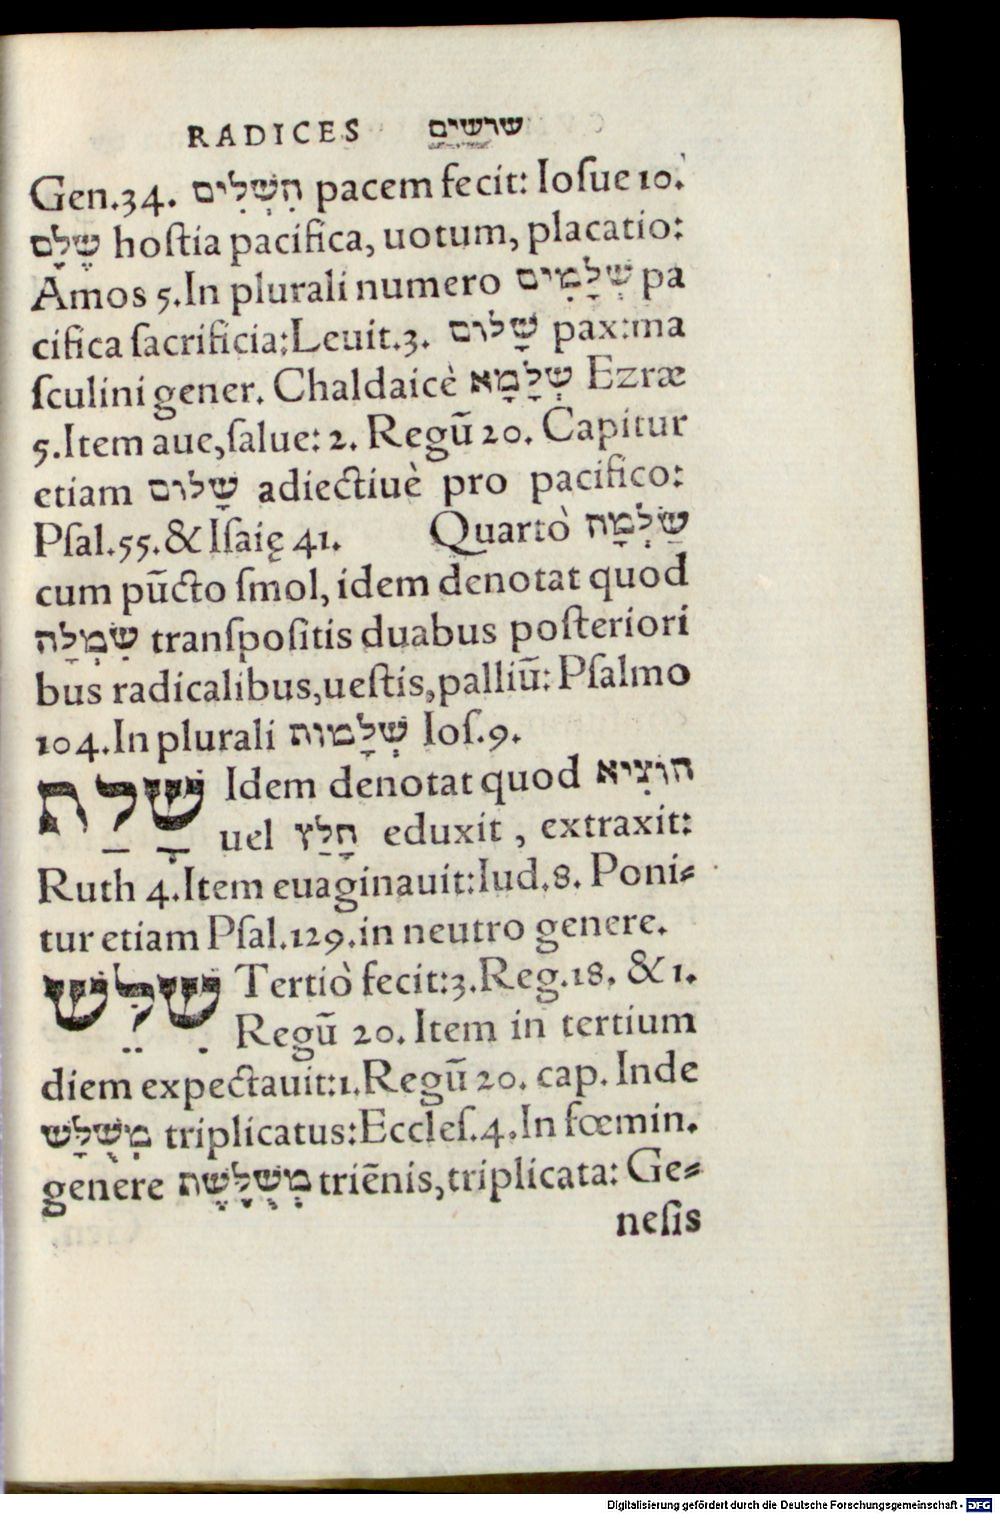 RADICES שרשים
Gen.34. הִשְׁלִים pacem fecit: Ioſue 10.
שֶׁלָם hoſtia pacifica, uotum, placatio:
Amos 5.In plurali numero שְׁלָמִים pa
cifica ſacrificia:Leuit.3. שָׁלוֹם pax:ma
ſculini gener. Chaldaicè שְׁלָמָא Ezræ
5.Item aue,ſalue: 2. Regū 20. Capitur
etiam שָׁלוֹם adiectiuè pro pacifico:
Pſal.55.& Iſaię 41. Quartò שַׂלְמָה
cum pūcto ſmol, idem denotat quod
שִׂמְלָה tranſpoſitis duabus poſteriori
bus radicalibus,ueſtis,palliū: Pſalmo
104.In plurali שְׂלָמוֹת Ioſ.9.
שָׁלַת Idem denotat quod הוֹצִיא
uel חָלַץ eduxit , extraxit:
Ruth 4.Item euaginauit:Iud.8. Poni⸗
tur etiam Pſal.129.in neutro genere.
שִׁלֵּשׁ Tertiò fecit:3.Reg.18. & 1.
Regū 20. Item in tertium
diem expectauit:1.Regū 20. cap. Inde
מְשֻׁלָּשׁ triplicatus:Eccleſ.4.In fœmin.
genere מְשֻׁלֶּשֶׁת triēnis,triplicata: Ge⸗
neſis
Digitalisierung gefördert durch die Deutsche Forschungsgemeinschaft - DFG